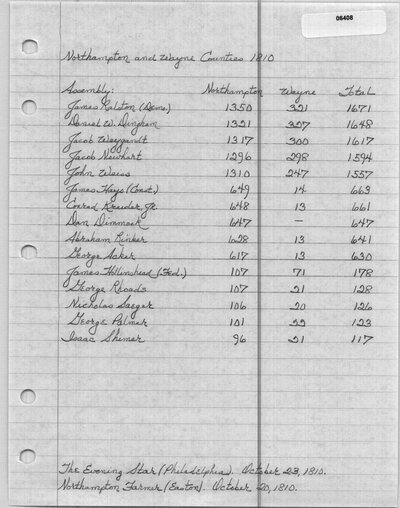 06408
Northampton and Wayne Counties 1810
Assembly: Northampton Wayne Total
James Ralston (Dem.) 1350 321 1671
Daniel W. Dingham 1321 327 1648
Jacob Weygandt 1317 300 1617
Jacob Newhart 1296 298 1594
John Weiss 1310 247 1557
James Hays (Const.) 649 14 663
Conrad Kreider, Jr. 648 13 661
Dan Dimmock 647 — 647
Abraham Rinker 628 13 641
George Acker 617 13 630
James Hollinshead (Fed.) 107 71 178
George Rhoads 107 21 128
Nicholas Saeger 106 20 126
George Palmer 101 22 123
Isaac Shimer 96 21 117
The Evening Star (Philadelphia). October 23, 1810.
Northampton Farmer (Easton). October 20, 1810.